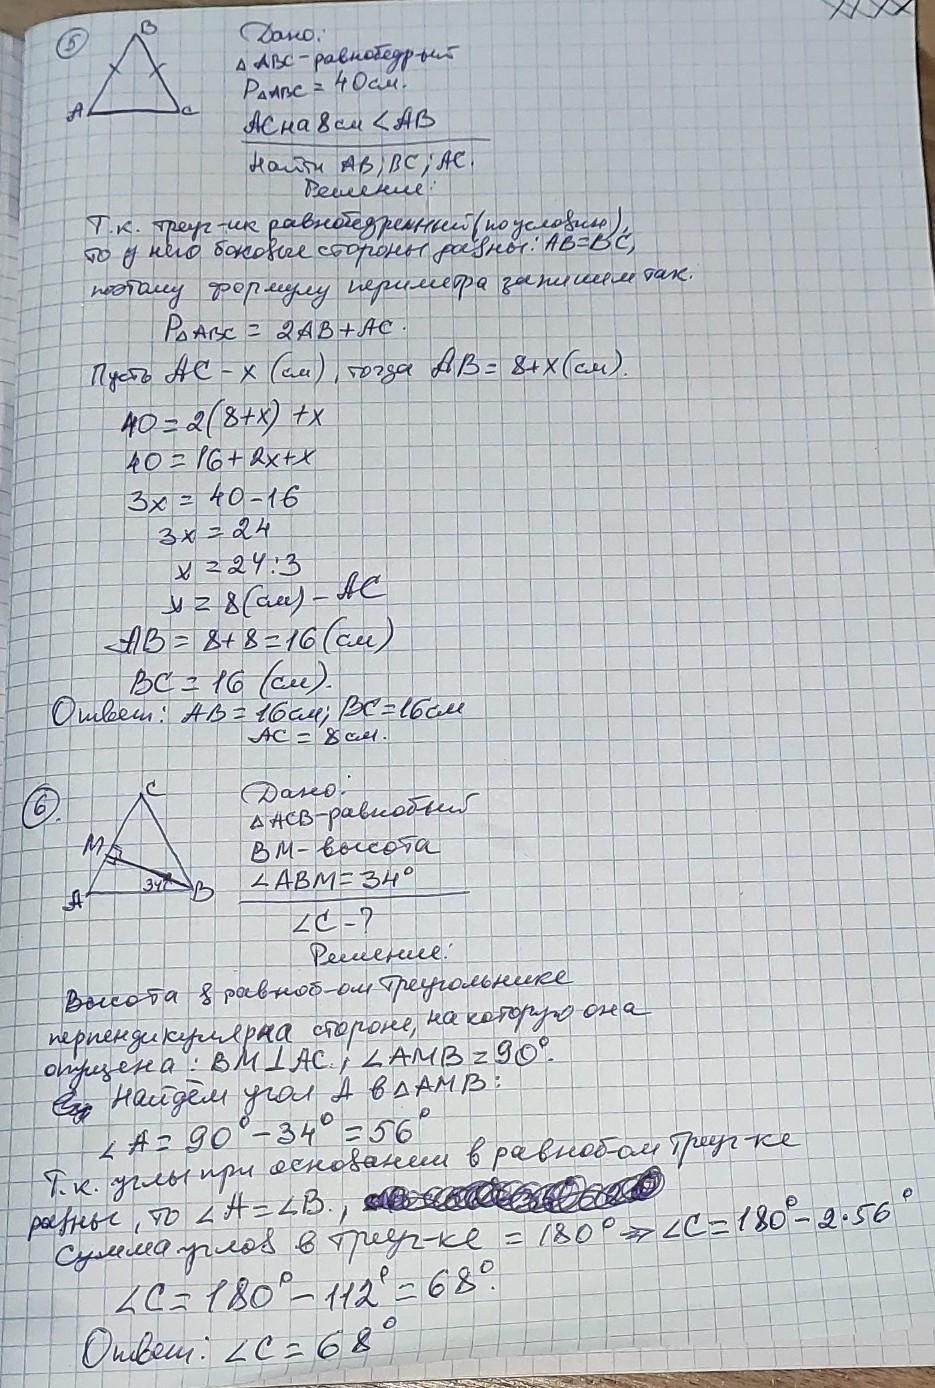 5
B
A
C
Дано:
△ABC-равнобедрый
P△ABC = 40см.
AC на 8см < AB
Найти AB; BC; AC.
Решение:
Т.к. треуг-ик равнобедренный (по условию),
то у него боковые стороны равны: AB=BC,
поэтому формулу периметра запишем так.
P△ABC = 2AB+AC.
Пусть AC - x (см), тогда AB = 8+x (см).
40 = 2(8+x) +x
40 = 16+2x+x
3x = 40-16
3x = 24
x = 24:3
x = 8(см) - AC
AB = 8+8=16 (см)
BC = 16 (см).
Ответ: AB = 16см; BC=16см
AC = 8см.
6.
C
M
34°
A
B
Дано:
△ACB-равнобый
BM- высота
∠ABM=34°
∠C-?
Решение:
Высота в равноб-ом треугольнике
перпендикулярна стороне, на которую она
опущена: BM⊥AC.; ∠AMB=90°.
Найдём угол A в △AMB:
∠A= 90°-34°=56°
Т.к. углы при основании в равноб-ом треуг-ке
равны, то ∠A=∠B.,
Сумма углов в треуг-ке = 180° ⇒ ∠C=180°-2·56°
∠C= 180°-112°=68°.
Ответ: ∠C=68°